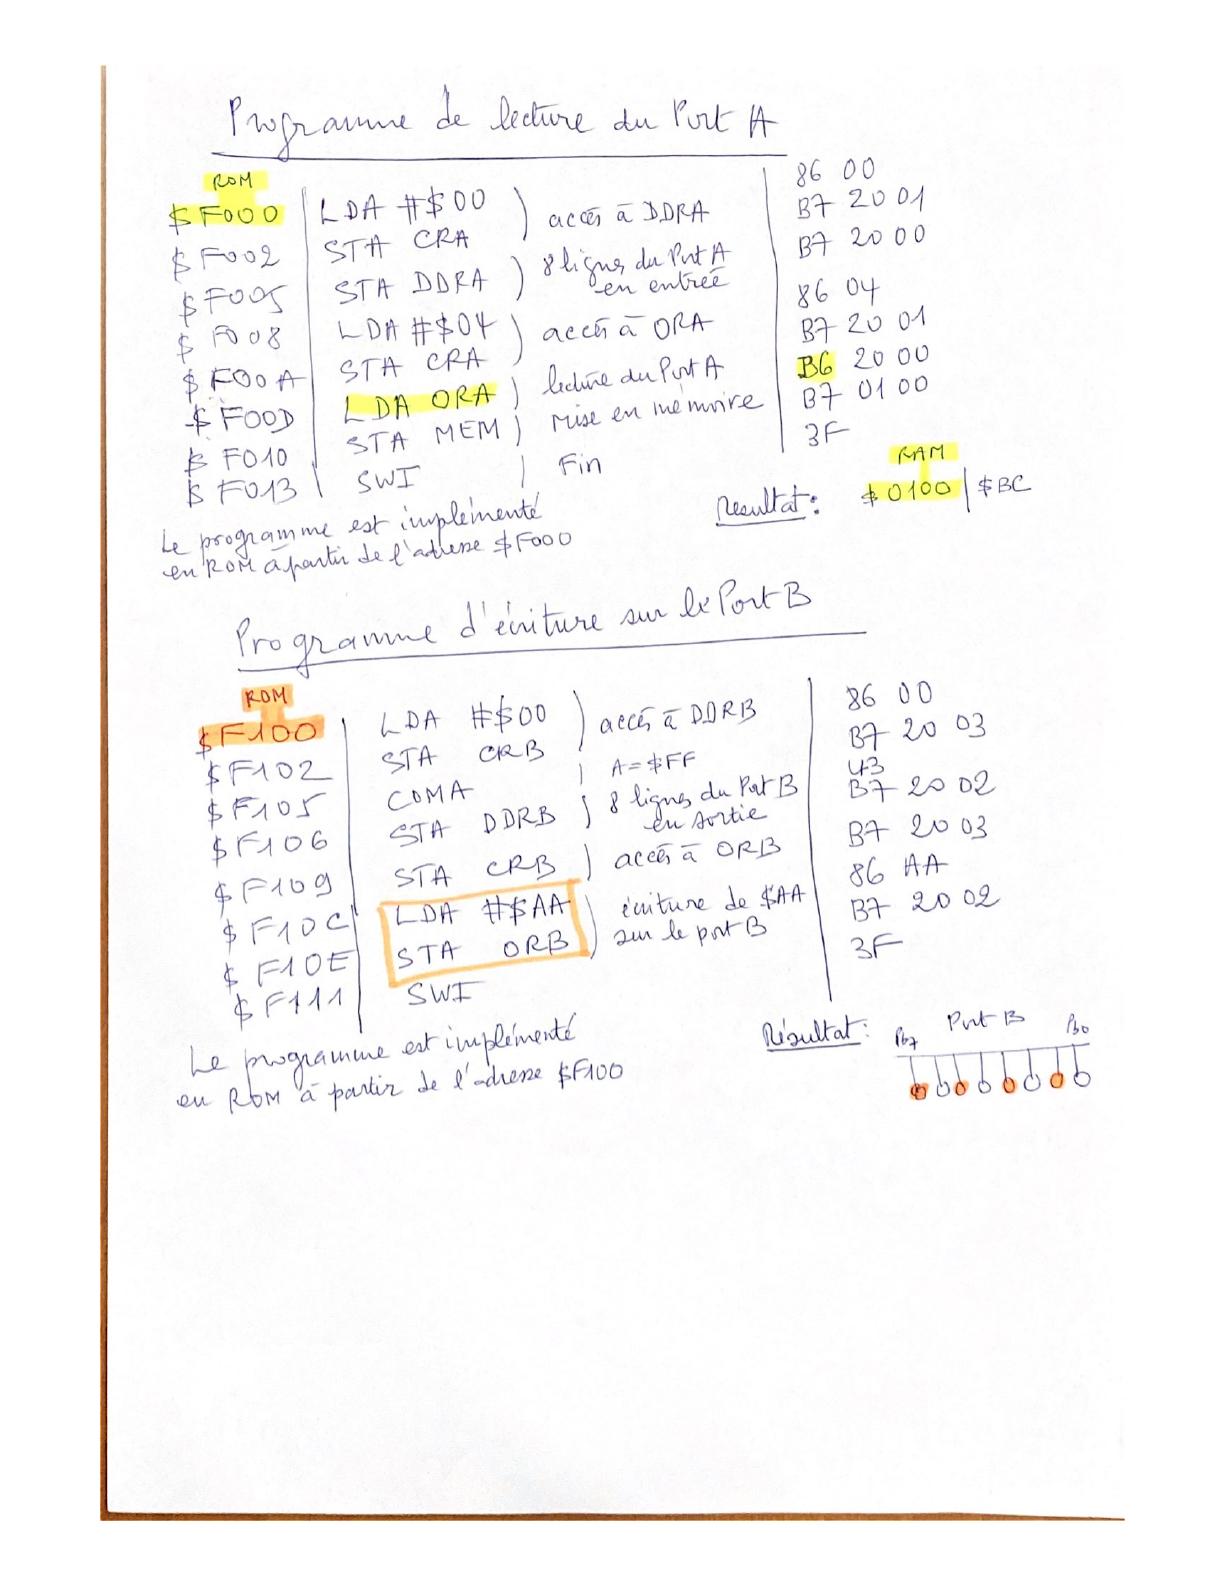 Programme de lecture du Port A
ROM
$F000 LDA #$00 accès à DDRA 86 00
$F002 STA CRA B7 20 01
$F005 STA DDRA 8 lignes du Port A en entrée B7 20 00
$F008 LDA #$04 accès à ORA 86 04
$F00A STA CRA B7 20 01
$F00D LDA ORA lecture du Port A B6 20 00
$F010 STA MEM mise en mémoire B7 01 00
$F013 SWI Fin 3F
RAM
Resultat: $0100 $BC
Le programme est implémenté
en ROM à partir de l'adresse $F000
Programme d'écriture sur le Port B
ROM
$F100 LDA #$00 accès à DDRB 86 00
$F102 STA CRB B7 20 03
$F105 COMA A=$FF 43
$F106 STA DDRB 8 lignes du Port B en sortie B7 20 02
$F109 STA CRB accès à ORB B7 20 03
$F10C LDA #$AA écriture de $AA 86 AA
$F10E STA ORB sur le port B B7 20 02
$F111 SWI 3F
Le programme est implémenté
en ROM à partir de l'adresse $F100
Résultat: Pb7 Port B Pb0